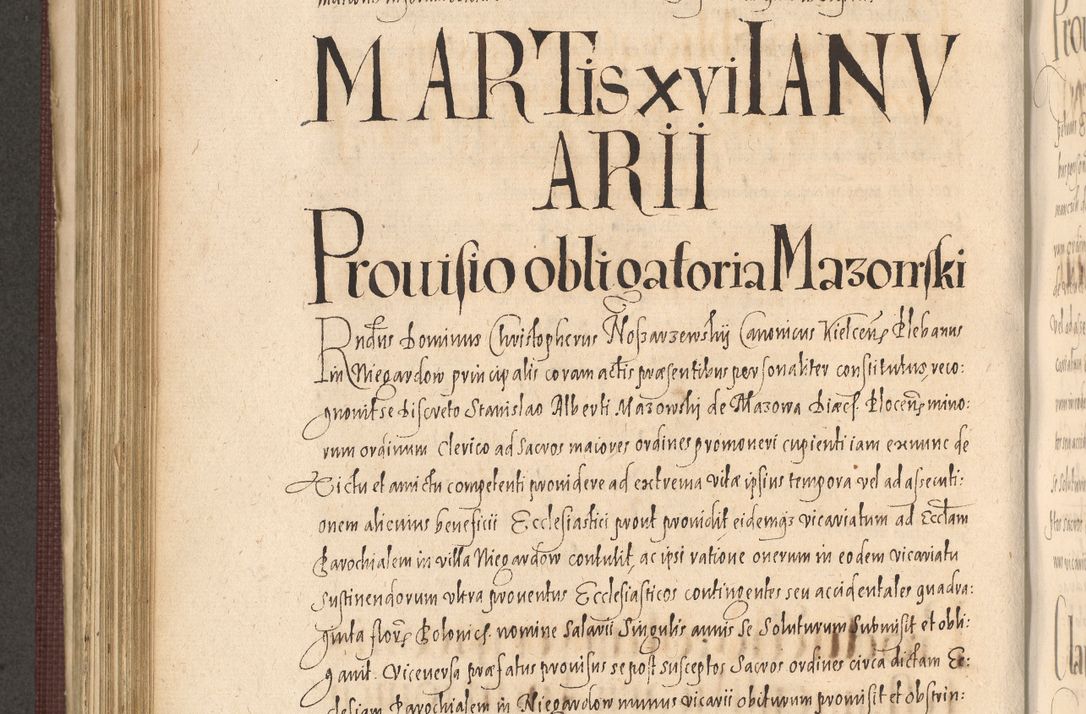 MARTis xvi IANV
ARII
Prouisio obligatoria Mazowski
Rndus Dominus Christopherus Noszarzewskij Canonicus Kielceñ Plebanus
in Niegardow principalis coram actis præsentibus personaliter constitutus, reco-
gnouit se discreto Stanislao Alberti Mazowskij de Mazowa Diæcs. Ploceñ mino-
rum ordinum Clerico ad sacros maiores ordines promoneri cupienti iam exnunc de
Victu et amictu competenti prouidere ad extrema vitæ ipsius tempora vel ad assecuti:
onem alicuius beneficii Ecclesiastici prout prouidit eidemq3 vicariatum ad Eccłam
Parochialem in villa Niegardow contulit, ac ipsi ratione onerum in eodem vicariatu
sustinendorum vltra prouentus Ecclesiasticos contingentes seu accidentales quadra:
ginta flor Polonics. nomine salarii singulis annis se soluturum submisit et obli:
gauit. Viceuersa præfatus prouisus se post susceptos sacros ordines circa dictam Ec:
clesiam Parochialem in Niegardow munus vicarii obiturum promisit et obstrin: